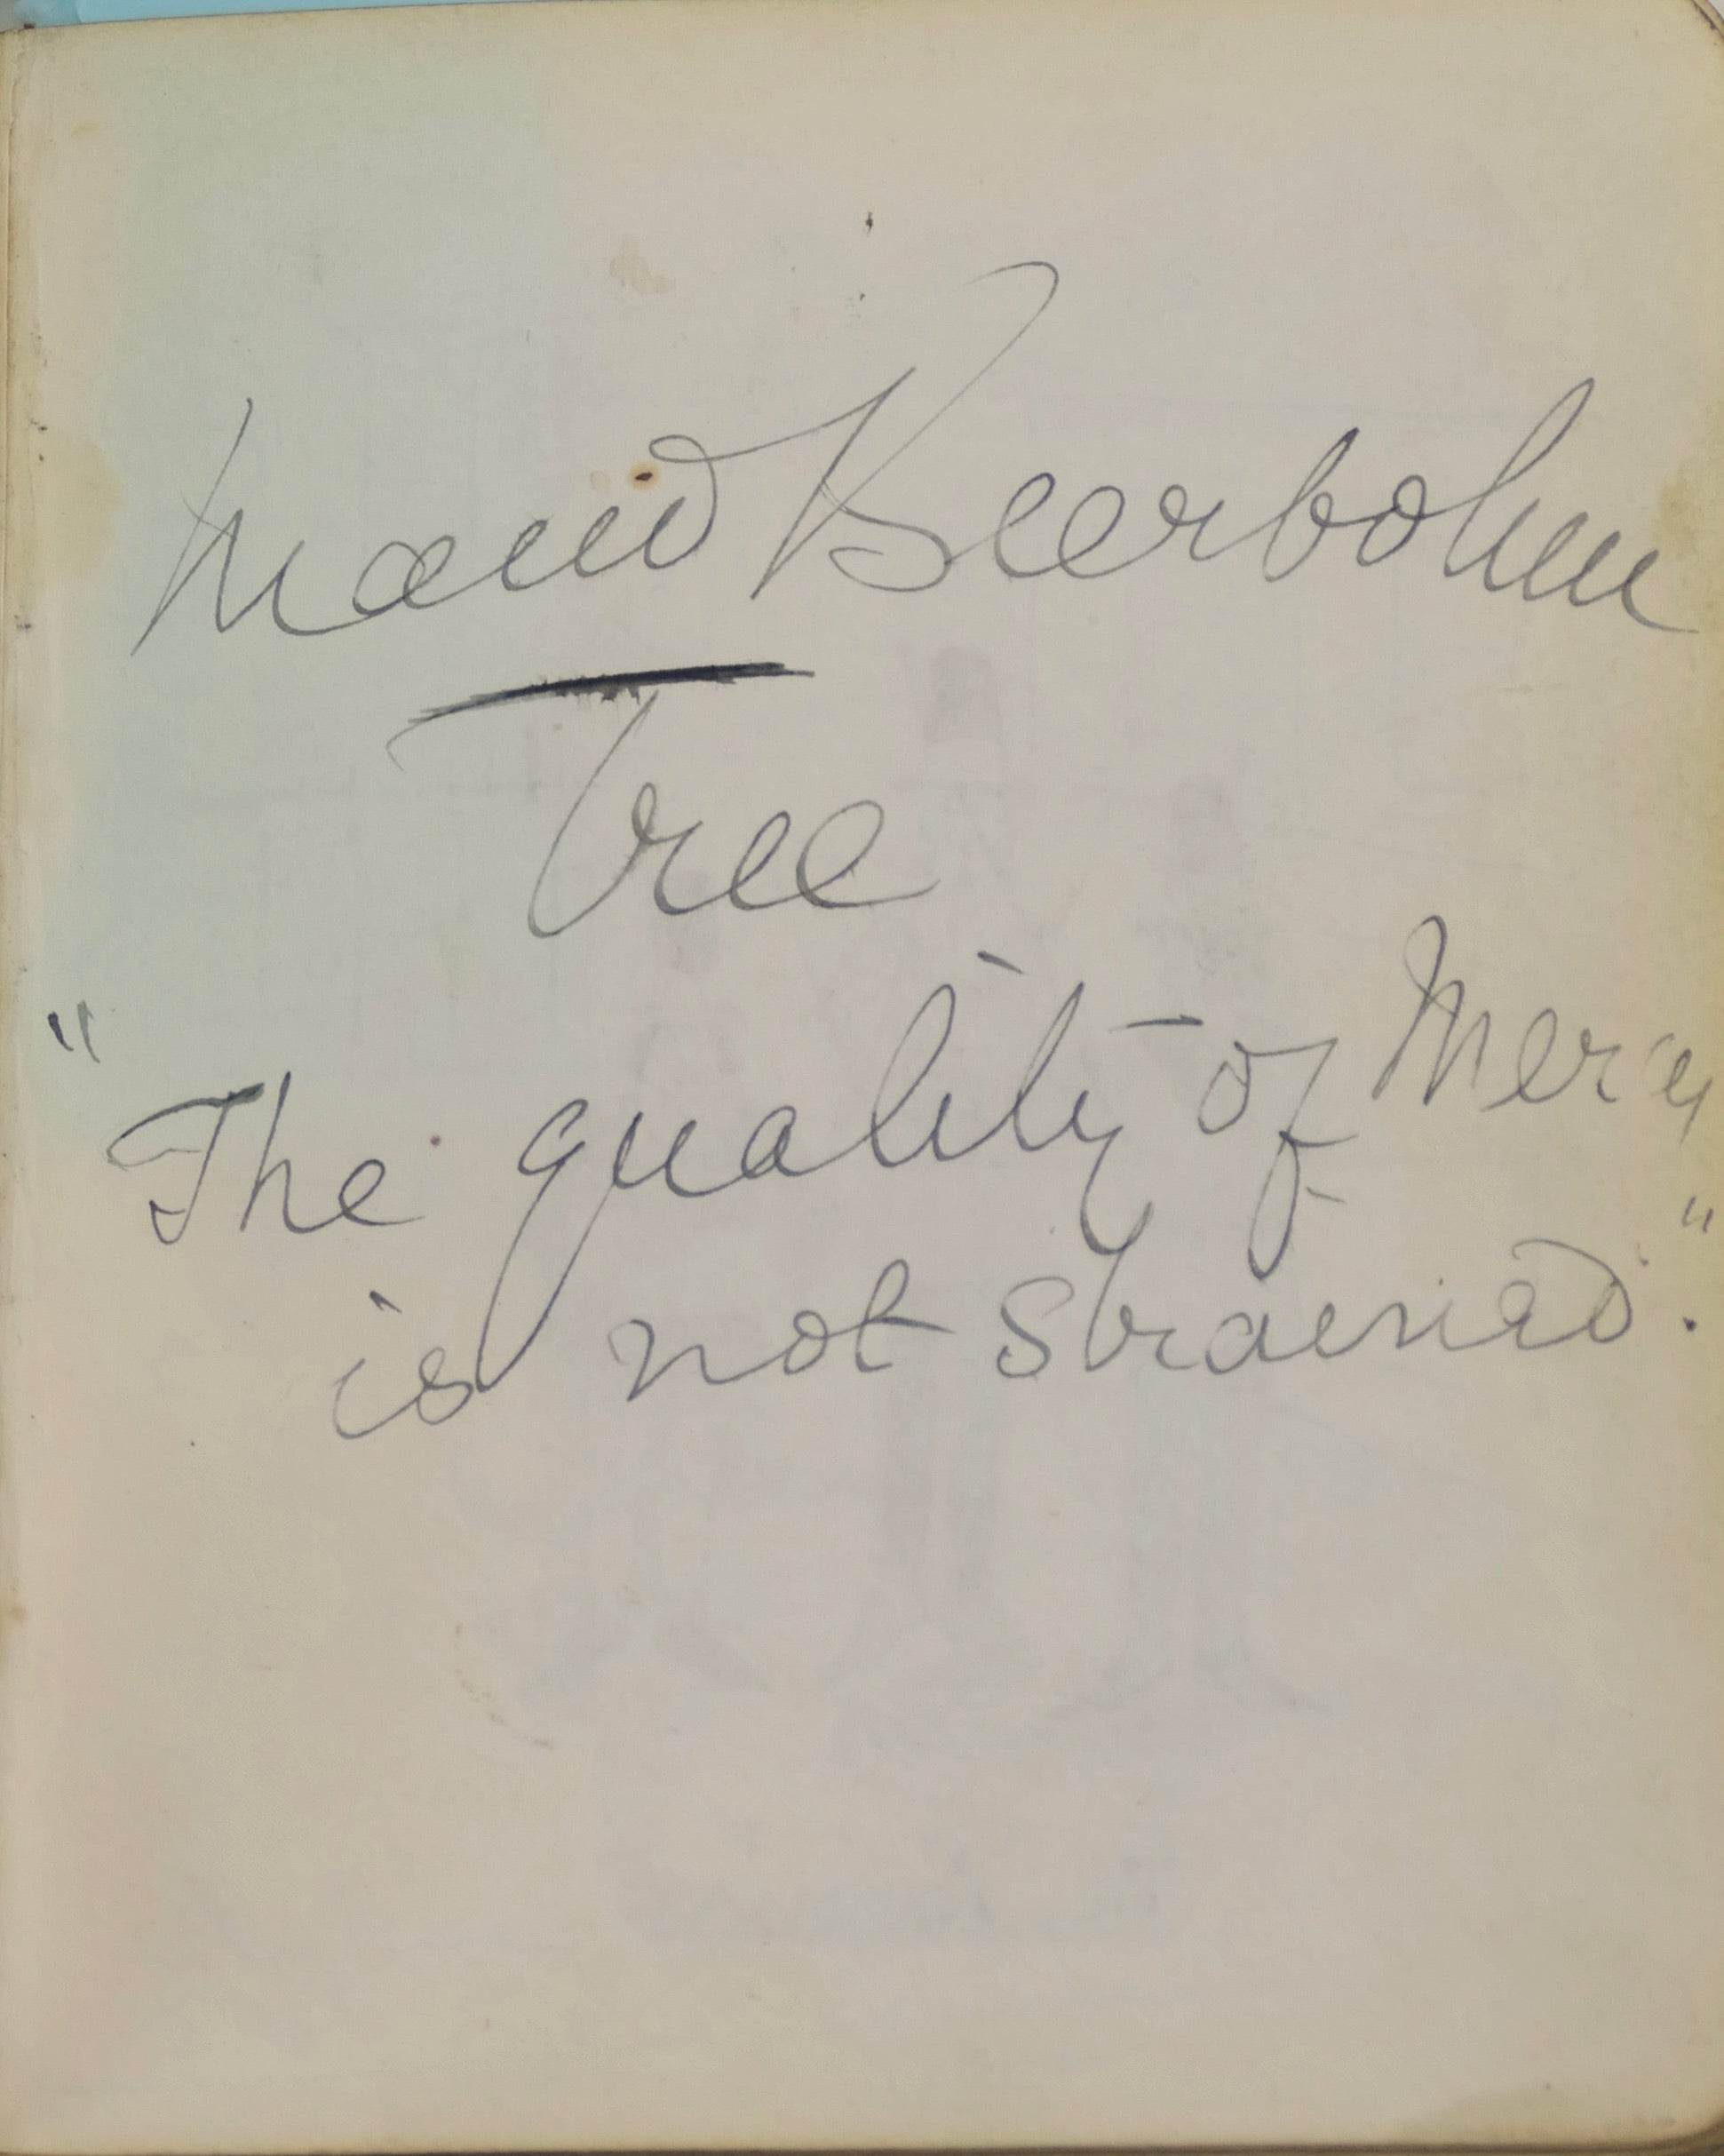 Maud Beerbohm
Tree
"The quality of Mercy
is not strained."